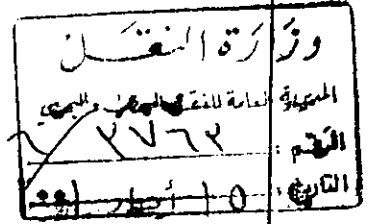 وزارة النقل
المديرية العامة للنقل البري والبحري
الرقم : ٣٧٦٣
التاريخ : ١٥ أيار